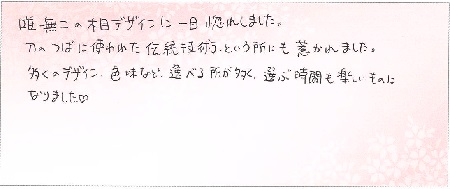 唯一無二の木目デザインに一目惚れしました。
刀のつばに使われた伝統技術、という所にも惹かれました。
多くのデザイン、色味など、選べる所が多く、選ぶ時間も楽しいものに
なりました♡